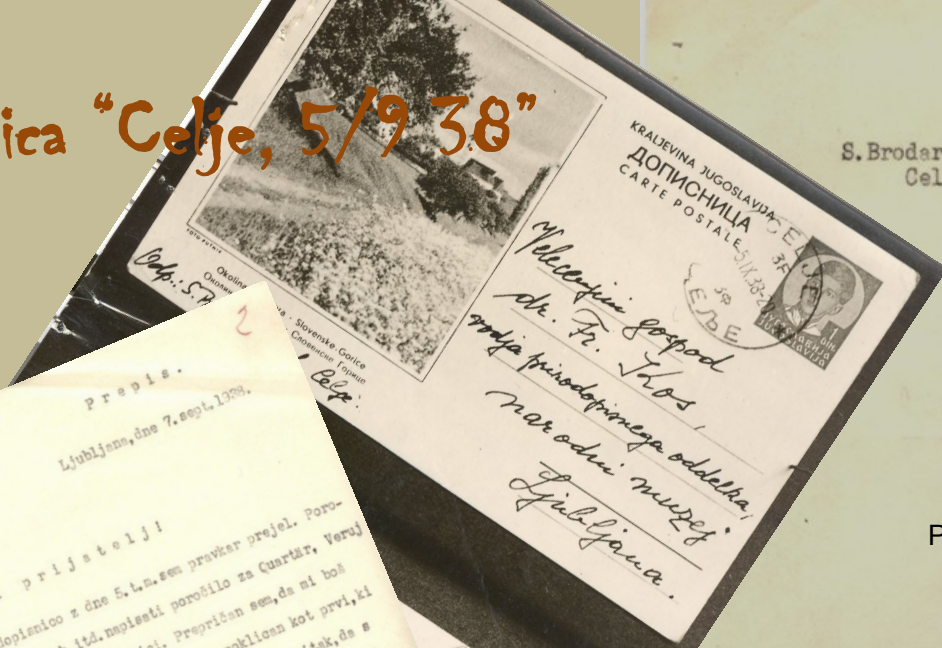 ica “Celje, 5/9 38”
KRALJEVINA JUGOSLAVIJA
ДОПИСНИЦА
CARTE POSTALE
Velecenjeni gospod
dr. Fr. Kos,
vodja prirodopisnega oddelka,
narodni muzej
Ljubljana.
FOTO PUTNIK
Odp.: S.
Slovenske Gorice
Словенске Горице
Celje.
2
Prepis.
Ljubljana, dne 7.sept.1938.
prijatelj!
dopisnico z dne 5.t.m.sem pravkar prejel. Poro-
itd.napisati poročilo za Quartär. Veruj
Prepričan sem,da mi boš
poklican kot prvi,ki
da s
S.Brodar
Cel
P